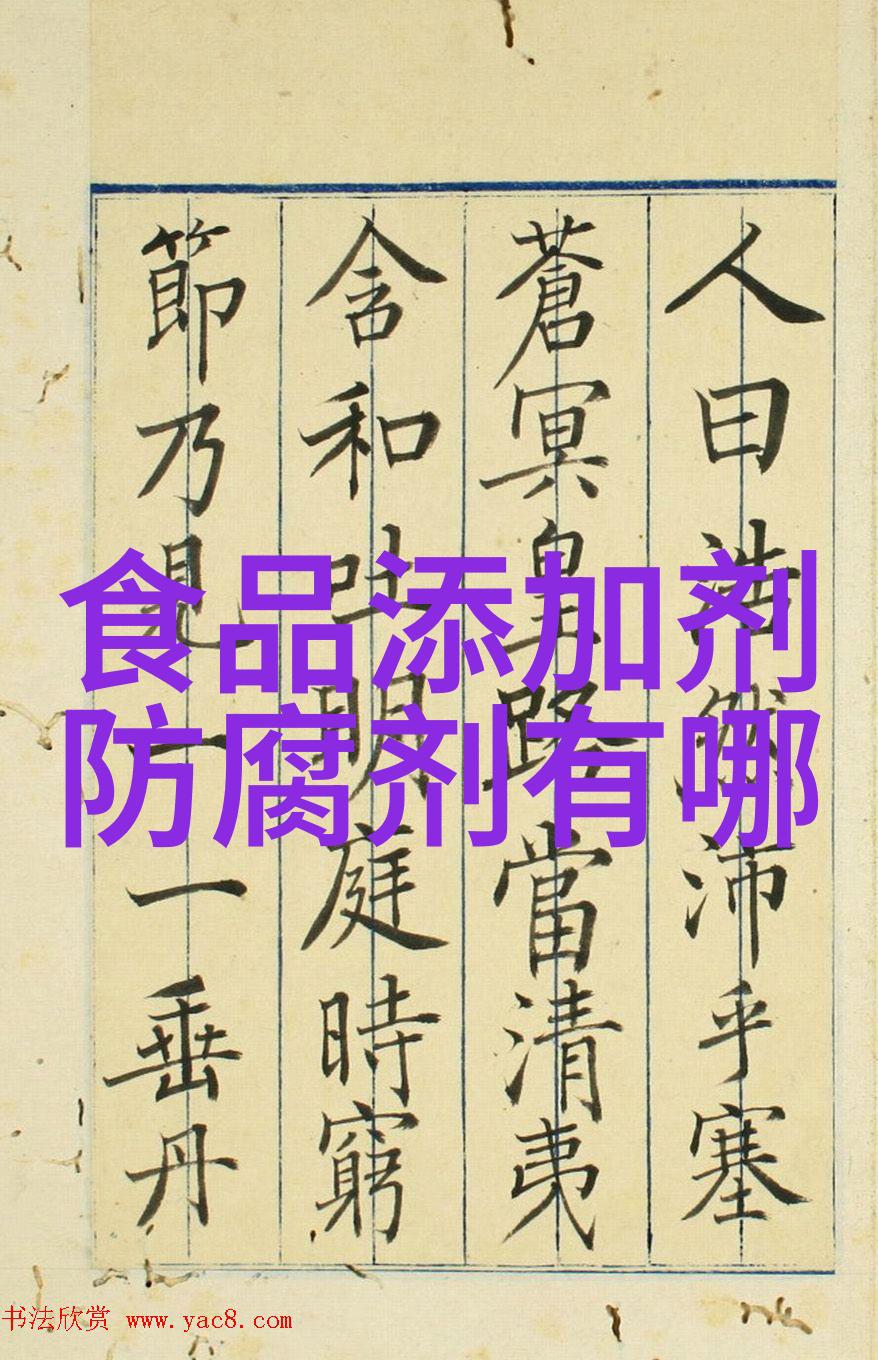 人曰浩然沛乎塞
蒼冥皇路當清夷
含和吐明庭時窮
節乃見一一垂丹
食品添加剂
防腐剂有哪
书法欣赏 www.yac8.com